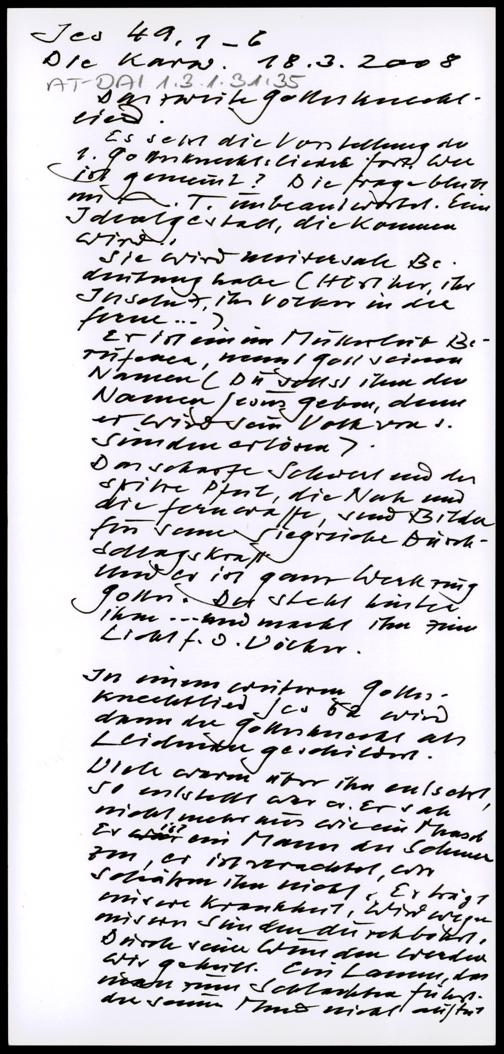 Jes 49, 1-6
Die Karw. 18.3.2008
AT-DAI 1.3.1.31.35
Das zweite Gottesknecht-
lied.
Es setzt die Vorstellung des
1. Gottesknechtsliedes fort. Wer
ist gemeint? Die Frage bleibt
im A.T. unbeantwortet. Eine
Idealgestalt, die kommen
wird.
Sie wird universale Be-
deutung habe (Hört her, ihr
Inseln, ihr Völker in der
Ferne ...)
Er ist ein im Mutterleib Be-
rufener, nennt Gott seinen
Namen (Du sollst ihm den
Namen Jesus geben, denn
er wird sein Volk von s.
Sünden erlösen).
Das scharfe Schwert und der
spitze Pfeil, die Nah und
die Fernwaffe, sind Bilder
für seine siegreiche Durch-
schlagskraft
Und er ist ganz Werkzeug
Gottes. Der steht hinter
ihm ... und macht ihn zum
Licht f. d. Völker.
In einem weiteren Gottes-
knechtlied Jes 52 wird
dann der Gottesknecht als
Leidender geschildert.
Viele waren über ihn entsetzt,
so entstellt war er. Er sah
nicht mehr aus wie ein Mensch
Er ist ein Mann der Schmer
zen, er ist verachtet, wir
schätzen ihn nicht. Er trägt
unsere Krankheit, Wird wegen
unserer Sünden durchbohrt.
Durch seine Wunden werden
wir geheilt. Ein Lamm, das
man zum Schlachten führt.
der seinen Mund nicht auftut